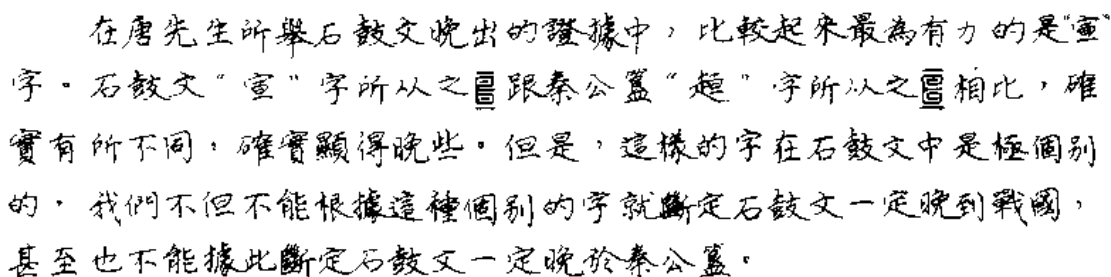 在唐先生所舉石鼓文晚出的證據中，比較起來最為有力的是"宣"
字。石鼓文"宣"字所从之跟秦公簋"趄"字所从之相比，確
實有所不同，確實顯得晚些。但是，這樣的字在石鼓文中是極個別
的。我們不但不能根據這種個別的字就斷定石鼓文一定晚到戰國，
甚至也不能據此斷定石鼓文一定晚於秦公簋。